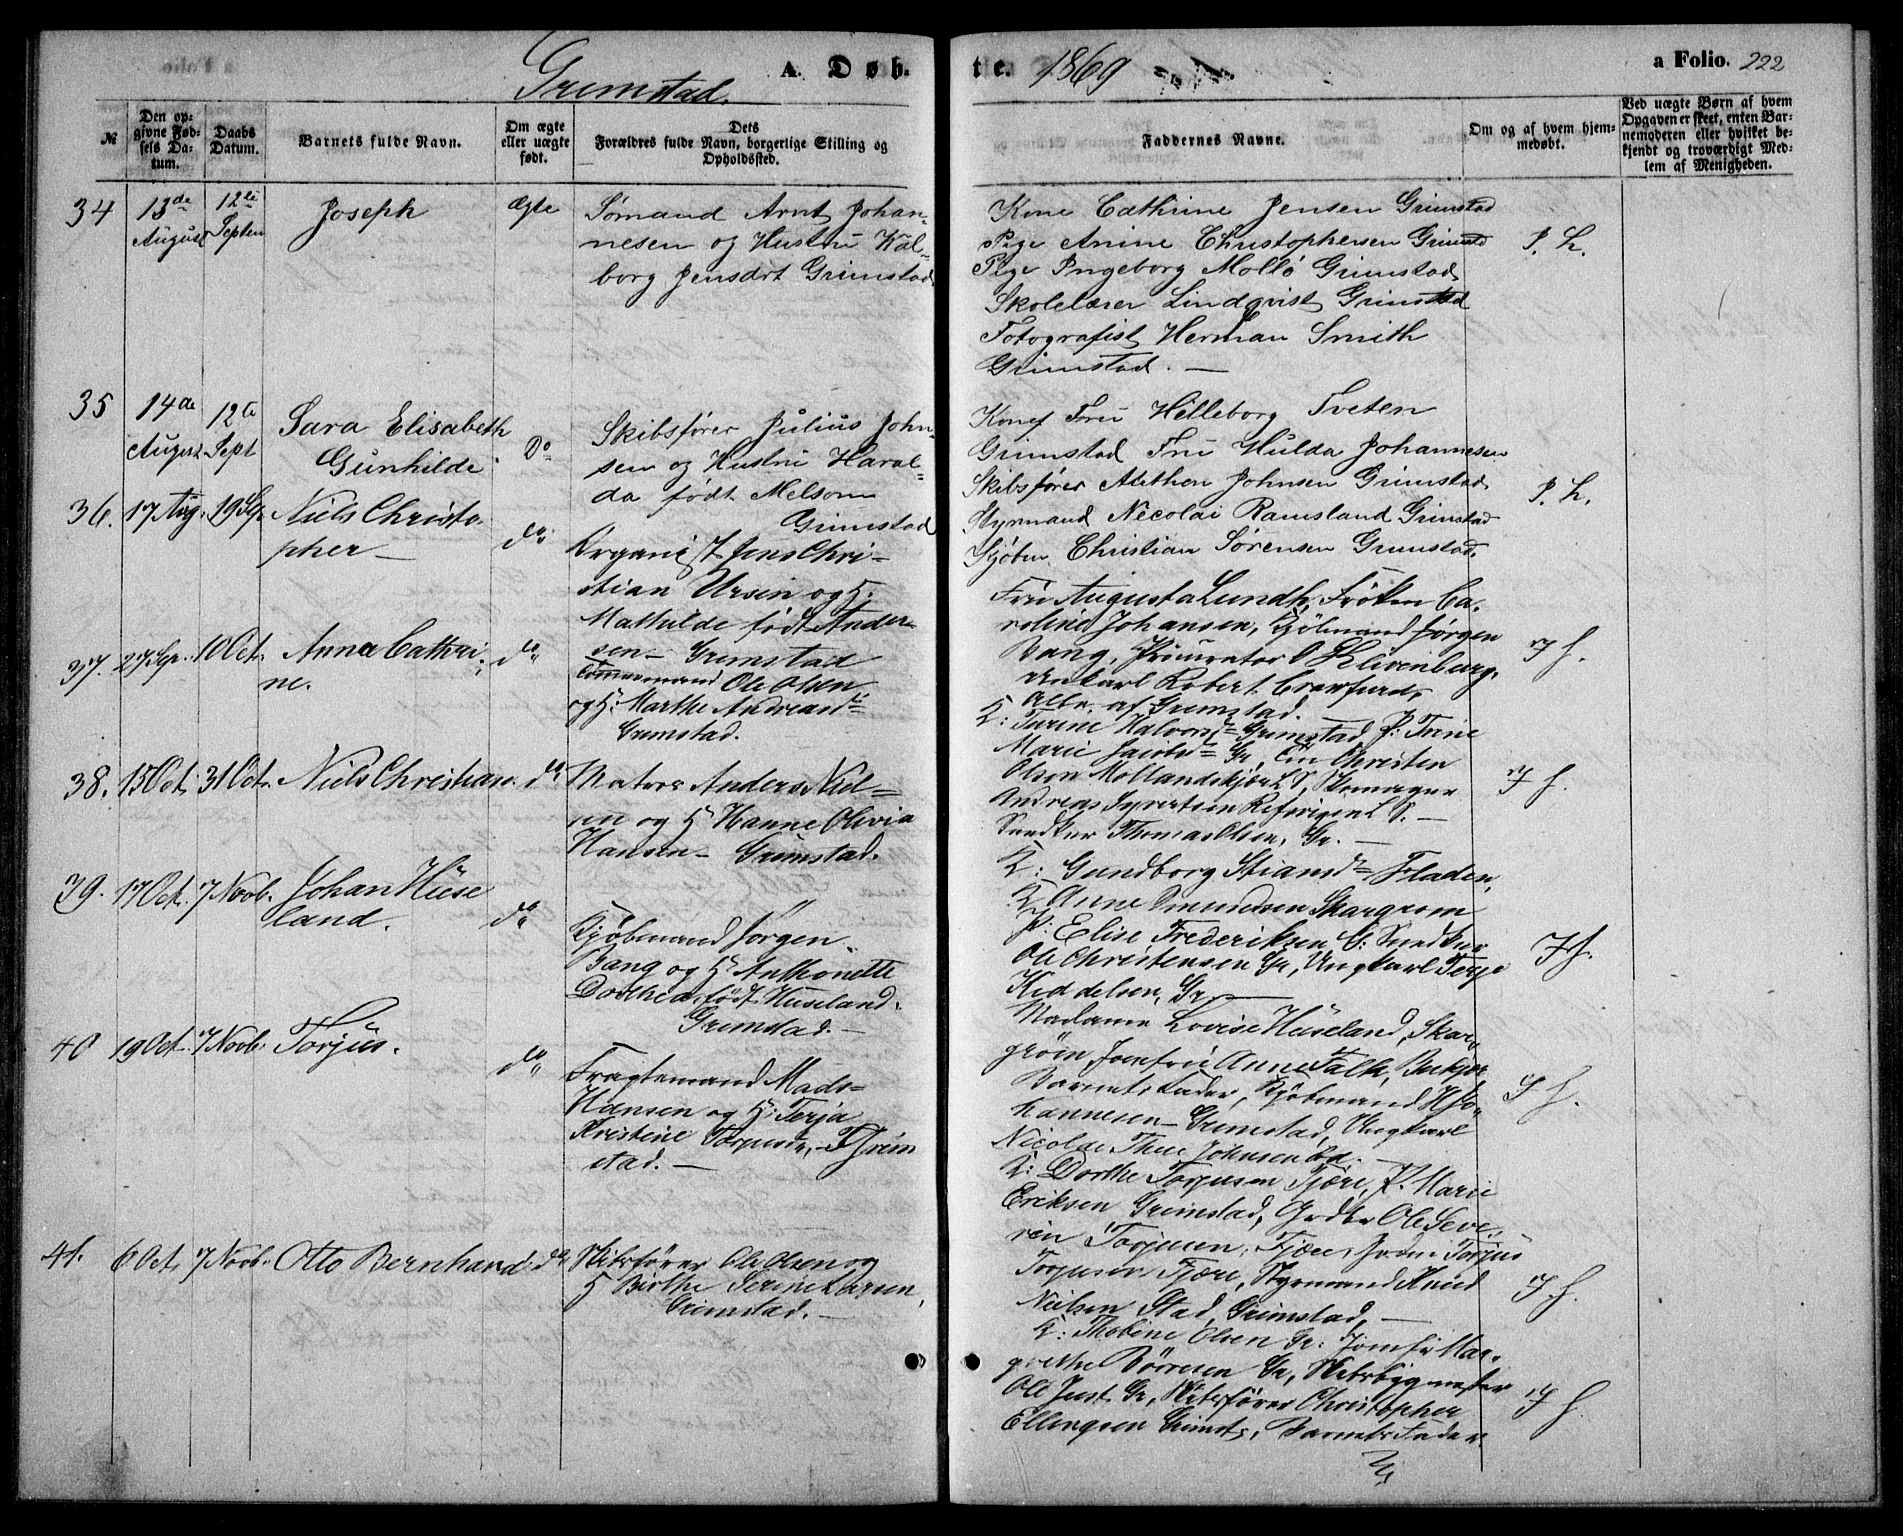 Grimstad.
A. Døb-
te. 1869
a Folio. 222
№
Den op-
givne Fød-
sels Da-
tum.
Daabs
Datum.
Barnets fulde Navn.
Om ægte
eller uægte
født.
Dets
Forældres fulde Navn, borgerlige Stilling og
Opholdssted.
Faddernes Navne.
Om og af hvem hjem-
medøbt.
Ved uægte Børn af hvem
Opgaven er skeet, enten Bar-
nemoderen eller hvilket be-
kjendt og troværdigt Med-
lem af Menigheden.
34
13de
August
12te
Septen
Joseph
Ægte
Sømand Arnt Johan-
nesen og Hustru Kal-
borg Jensdrt Grimstad
Kone Cathrine Jensen Grimstad
Pige Anine Christophersen Grimstd
Pige Ingeborg Mollo Grimstad
Skolelærer Lindqvist Grimstad
Fotografist Herman Smith
Grimstad. —
35
14de
August
12te
Sept
Sara Elisabeth
Gunhilde
Do
Skibsfører Julius John-
sen og Hustru Haral-
da født Melsom
Grimstad
Fru Hilleborg Tveten
Grimstad Fru Hulda Johannesen
Skibsfører Johnsen Grimstad
Styrmand Necolai Ramsland Grimstad
Christian Sørensen Grimstad.
36.
17 Aug.
19 Sep.
Niels Christo-
pher —
do
Organist Jens Chri-
stian Ursin og H.
Mathilde født Ander-
sen — Grimstad
Fru Augusta Lundh, Frøken Ca-
roline Johansen, Kjøbmand Jørgen
Bang, Procurator O
Unkarl Robert Crawfurd,
Alle af Grimstad.
37.
27 Sep.
10 Oct.
Anna Cathri-
ne.
do
Tømmermand Ole Olsen
og H: Marthe Andreasd
Grimstad.
K: Turine Halvorsd Grimstad P: Trine
Marie Jacobsd Gr,
Olsen
Andreas
Snedker Thomas Olsen, Gr. —
38.
15 Oct.
31 Oct.
Niels Christian.
do
Matros Anders Niel-
sen og H Hanne Olivia
Hansen — Grimstad.
K: Gundborg Stiansd Fladen,
K Anne
P: Elise Frederiksen G: Snedker
Ole Christensen Gr, Ungkarl Terje
Kiddelsen, Gr
39.
17 Oct.
7 Novb.
Johan Huse
land.
do
Kjøbmand Jørgen
Bang og H Anthonette
Dorthea, født Huseland
Grimstad. —
Madame Lovise Huseland,
Jomfru Anne Falk,
Barnets Fader, Kjøbmand H Jo-
hannesen — Grimstad, Ungkarl
Nicolai
40
19 Oct.
7 Novb.
Torjus.
do
Fragtemand Mads
Hansen og H: Terja
Kristine — Grim
stad. —
K: Dorthe Torjusen Fjære, P. Marie
Eriksen Grimstad, Ole Seve-
rin Torjusen, Fjære, Torjus
Torjusen Fjære, Styrmand Knud
Nielsen Stad, Grimstad. —
41.
6 Oct.
7 Novb.
Otto Bernhard.
do
Skibsfører Ole Olsen og
H Birthe Serine Larsen,
Grimstad. —
K: Thobine Olsen Gr: Jomfr Mar-
grethe Børresen Gr, Skibsbygmester
Ole Just Gr, Skibsfører Christopher
Ellingsen Grimst, Barnets Fader.